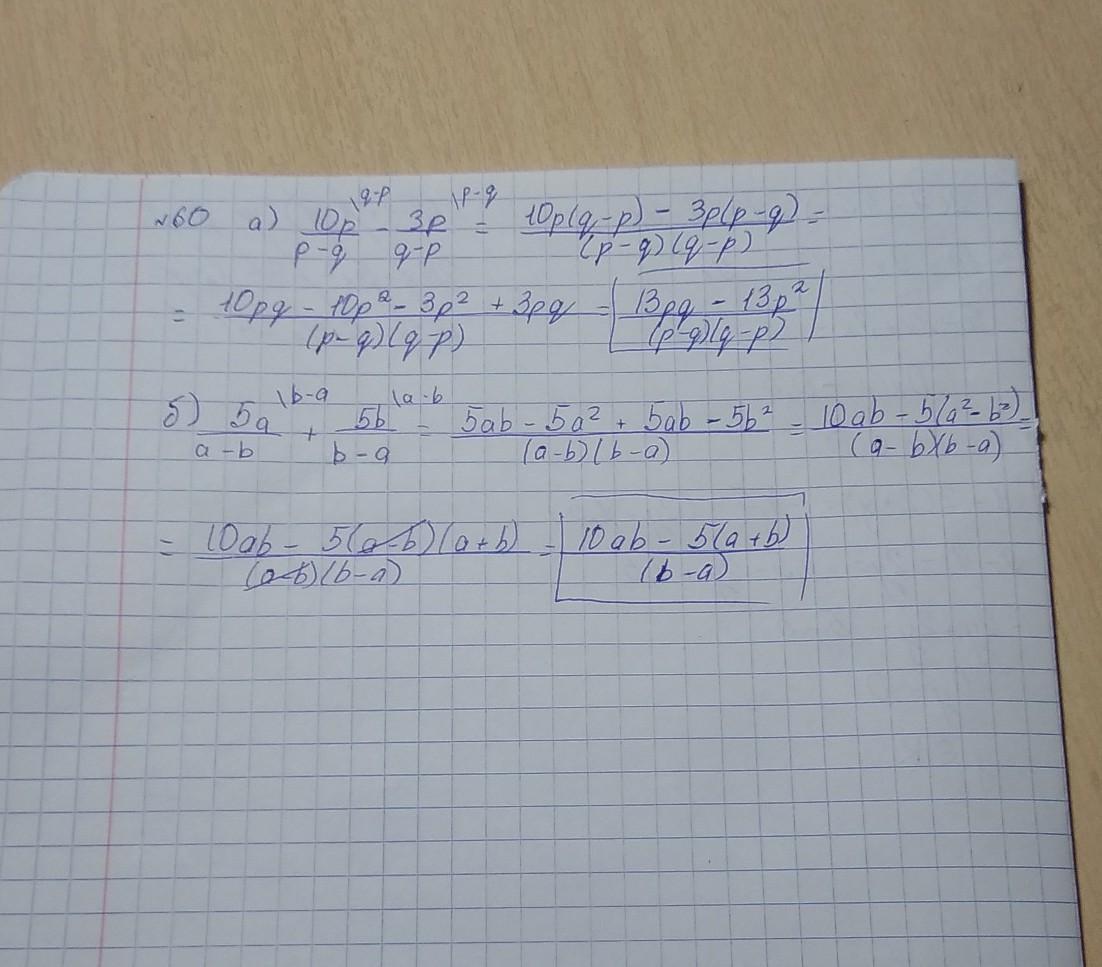 №60 а) 10p\q-p/p-q - 3p\p-q/q-p = 10p(q-p) - 3p(p-q)/(p-q)(q-p) =
= 10pq - 10p² - 3p² + 3pq/(p-q)(q-p) = 13pq - 13p²/(p-q)(q-p)
б) 5a\b-a/a-b + 5b\a-b/b-a = 5ab - 5a² + 5ab - 5b²/(a-b)(b-a) = 10ab - 5(a²-b²)/(a-b)(b-a) =
= 10ab - 5(a-b)(a+b)/(a-b)(b-a) = 10ab - 5(a+b)/(b-a)